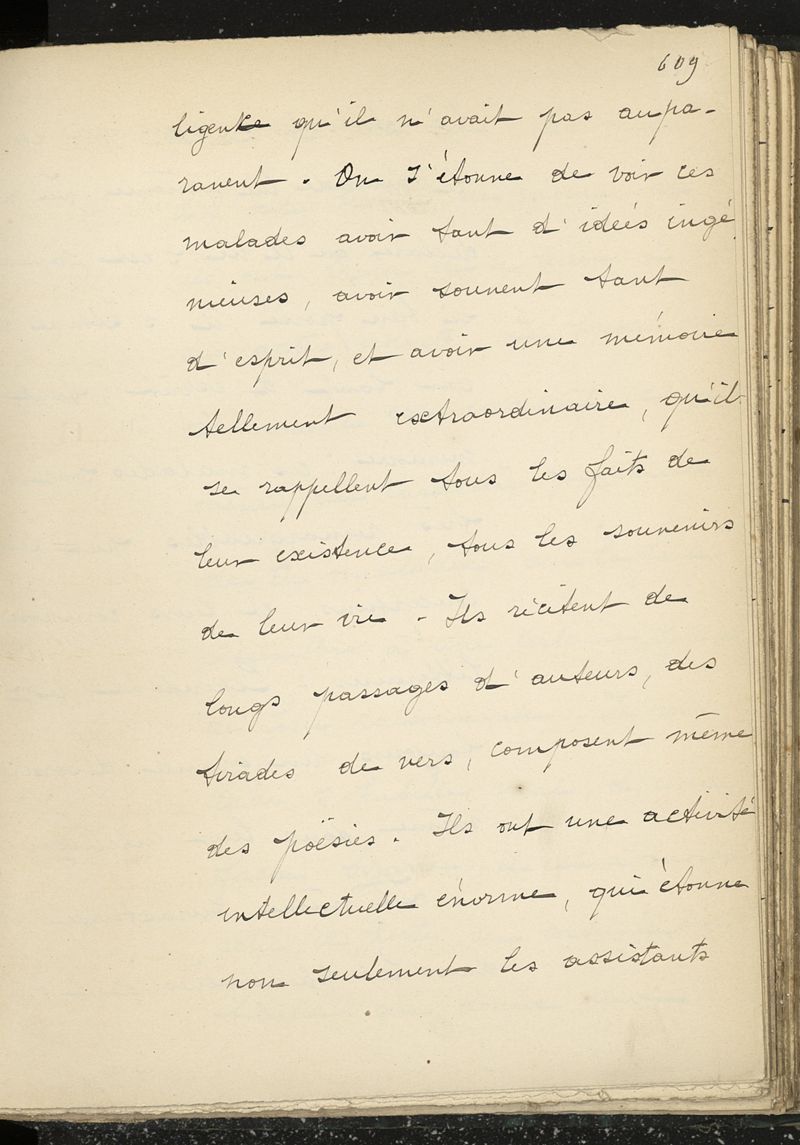 609
ligence qu'il n'avait pas aupa-
ravent. On s'étonne de voir ces
malades avoir tant d'ideés ingé
nieuses, avoir souvent tant
d'esprit, et avoir une mémoire
tellement extraordinaire, qu'il
se rappellent tous les faits de
leur existence, tous les souvenirs
de leur vie. Ils récitent de
longs passages d'auteurs, des
tirades de vers, composent même
des poësies. Ils ont une activité
intellectuelle énorme, qui étonne
non seulement les assistants